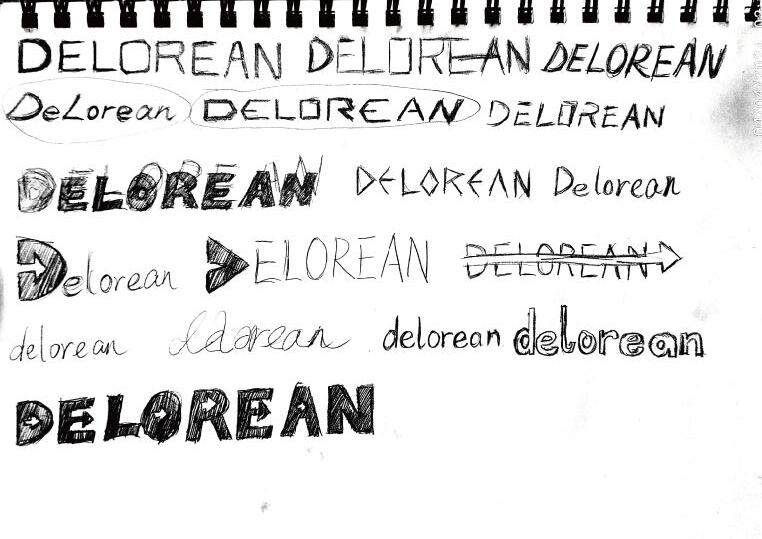 DELOREAN DELOREAN DELOREAN
DeLorean DELOREAN DELOREAN
DELOREAN DELOREAN Delorean
Delorean DELOREAN DELOREAN
delorean delorean delorean delorean
DELOREAN